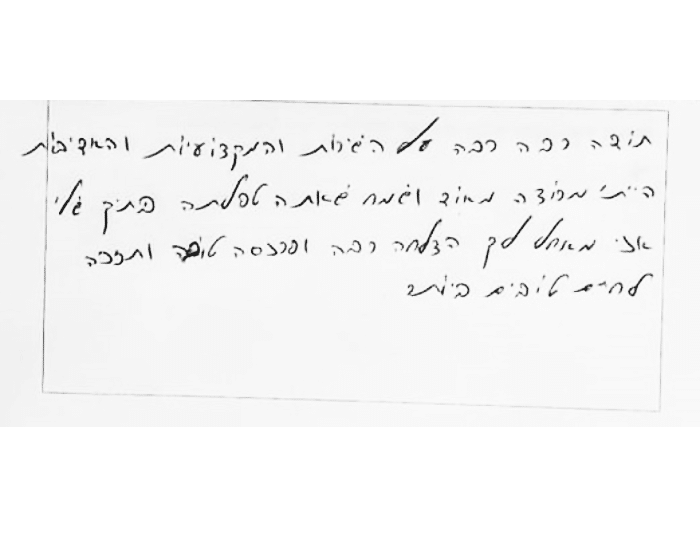 תודה רבה רבה על השירות והמקצועיות והאדיבות
הייתי מרוצה מאוד ושמח שאתה טפלתה בתיק שלי
אני מאחל לך הצלחה רבה ופרנסה טובה ותזכה
לחיים טובים ביותר